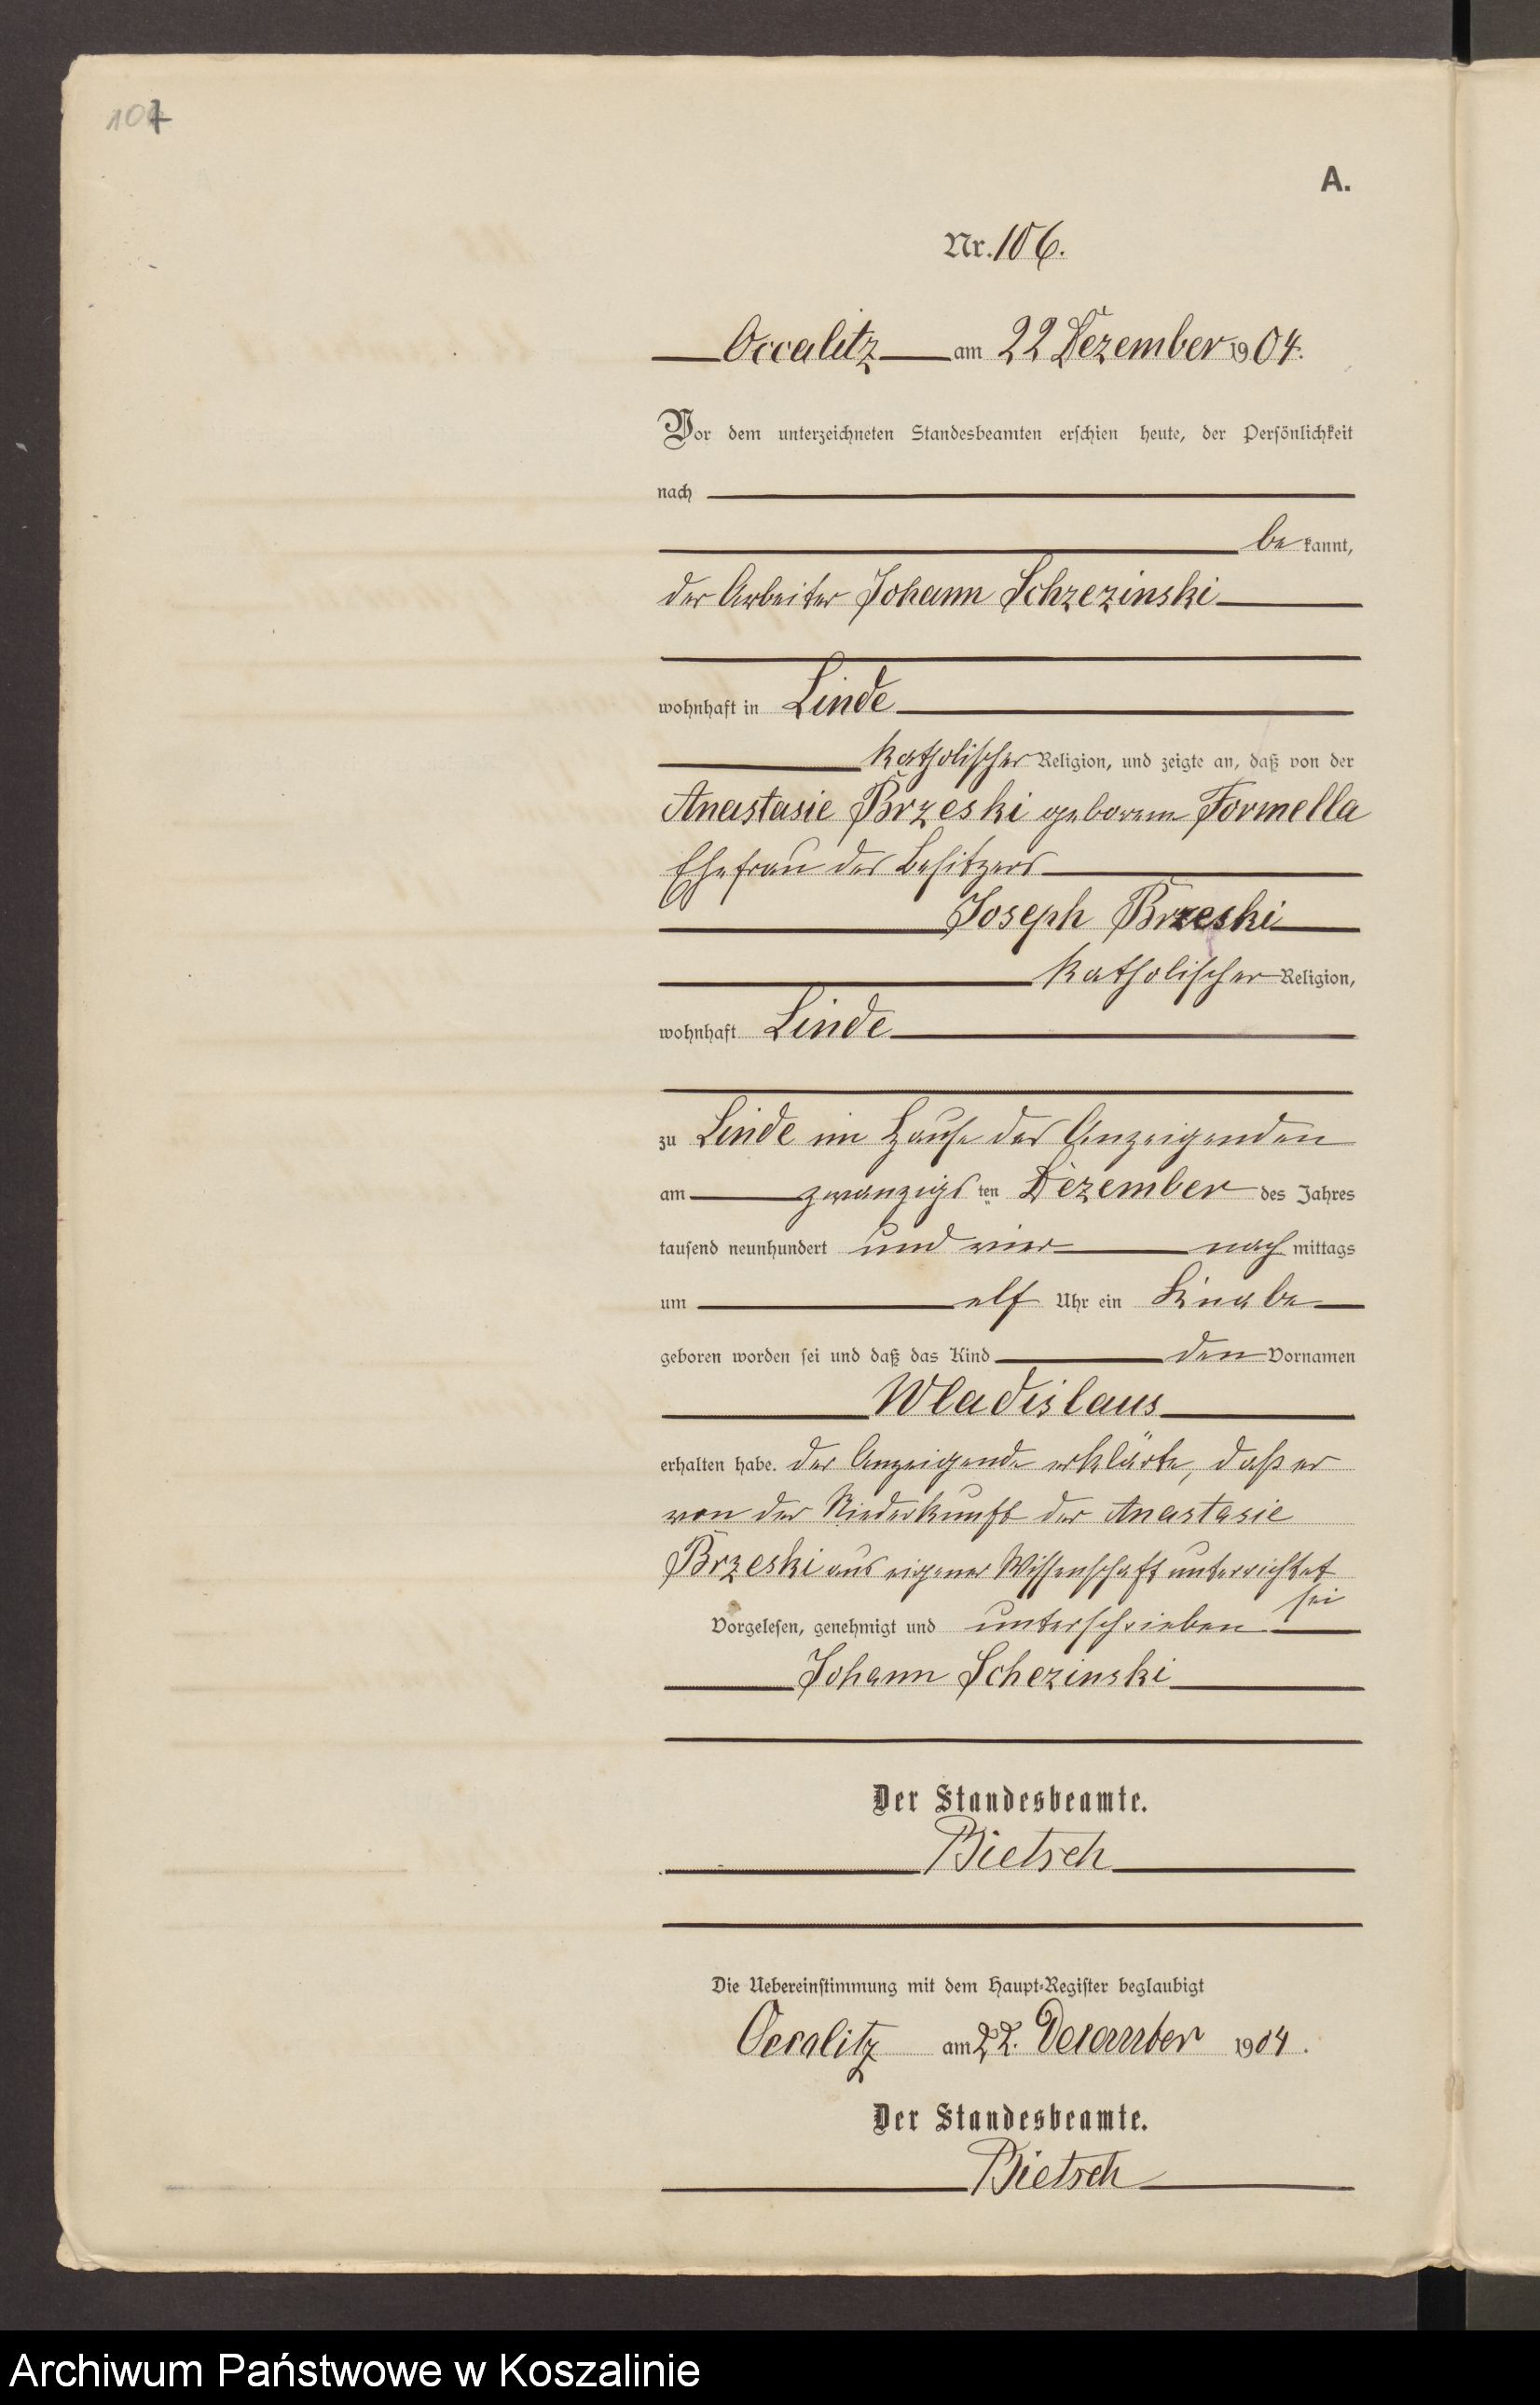 107
A.
Nr. 106.
Occalitz am 22 Dezember 1904.
Vor dem unterzeichneten Standesbeamten erschien heute, der Persönlichkeit
nach
bekannt,
der Arbeiter Johann Schzezinski
wohnhaft in Linde
katholischer Religion, und zeigte an, daß von der
Anastasie Brzeski geborene Formella
Ehefrau des Besitzers
Joseph Brzeski
katholischer Religion,
wohnhaft Linde
zu Linde im Hause des Anzeigenden
am zwanzigsten Dezember des Jahres
tausend neunhundert und vier nachmittags
um elf Uhr ein Knabe
geboren worden sei und daß das Kind den Vornamen
Wladislaus
erhalten habe. Der Anzeigende erklärte, daß er
von der Niederkunft der Anastasie
Brzeski aus eigener Wissenschaft unterrichtet
sei
Vorgelesen, genehmigt und unterschrieben
Johann Schezinski
Der Standesbeamte.
Bietsch
Die Uebereinstimmung mit dem Haupt-Register beglaubigt
Occalitz am 22. Dezember 1904.
Der Standesbeamte.
Bietsch
Archiwum Państwowe w Koszalinie